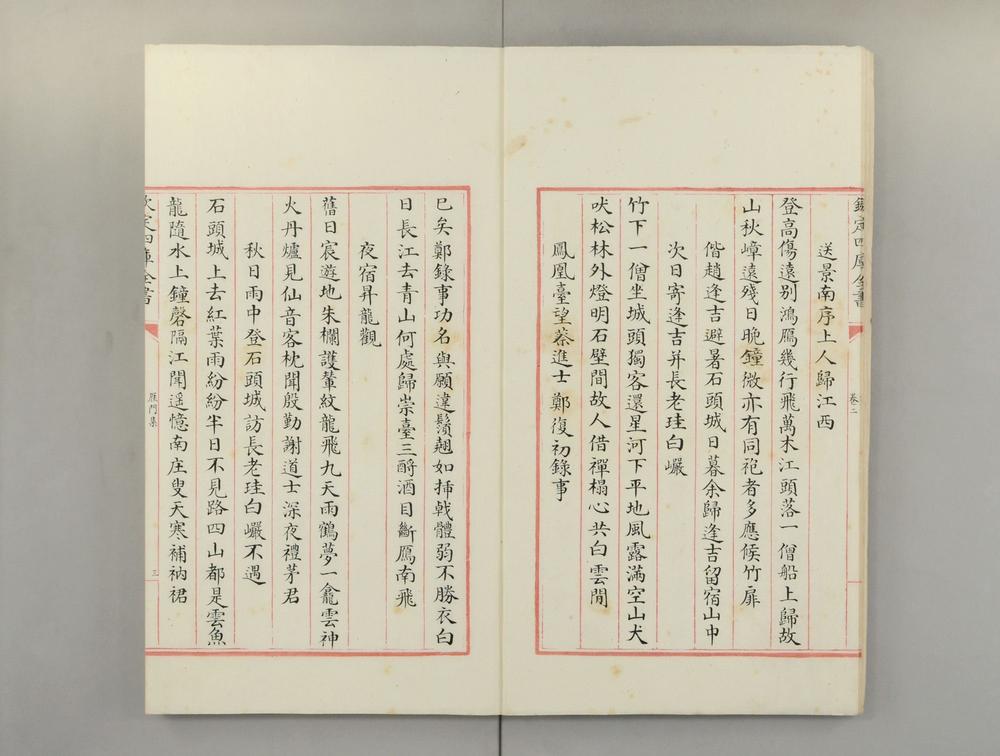 欽定四庫全書
卷二
送景南序上人歸江西
登高傷遠別鴻鴈幾行飛萬木江頭落一僧船上歸故
山秋嶂遠殘日晚鐘微亦有同袍者多應候竹扉
偕趙逢吉避暑石頭城日暮余歸逢吉留宿山中
次日寄逢吉并長老珪白巖
竹下一僧坐城頭獨客還星河下平地風露滿空山犬
吠松林外燈明石壁間故人借禪榻心共白雲閒
鳳凰臺望蔡進士 鄭復初錄事
已矣鄭錄事功名與願違鬚翹如插戟體弱不勝衣白
日長江去青山何處歸崇臺三酹酒目斷鴈南飛
夜宿昇龍觀
舊日宸遊地朱欄護輦紋龍飛九天雨鶴夢一龕雲神
火丹爐見仙音客枕聞殷勤謝道士深夜禮茅君
秋日雨中登石頭城訪長老珪白巖不遇
石頭城上去紅葉雨紛紛半日不見路四山都是雲魚
龍隨水上鐘磬隔江聞遥憶南庄叟天寒補衲裙
欽定四庫全書
雁門集
三